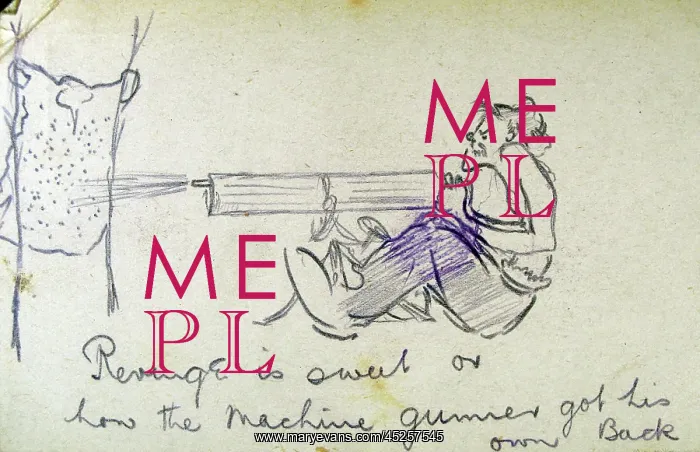 ME
PL
ME
PL
Revenge is sweet or
how the Machine gunner got his
own Back
www.maryevans.com/45257545